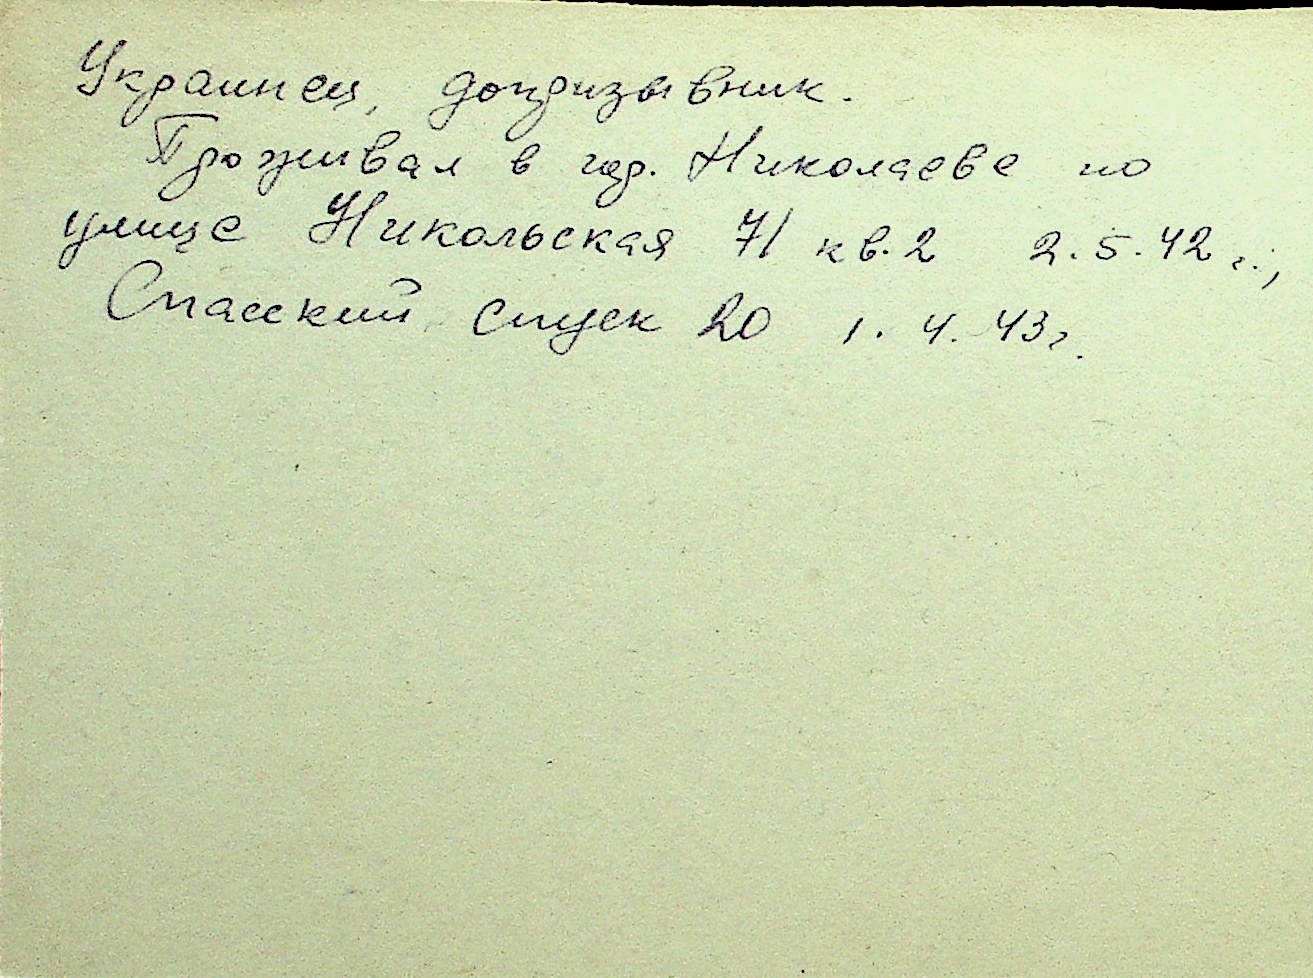 Украинец, допризывник.
Проживал в гор. Николаеве по
улице Никольская 71 кв. 2 2.5.42 г.,
Спасский спуск 20 1.4.43 г.